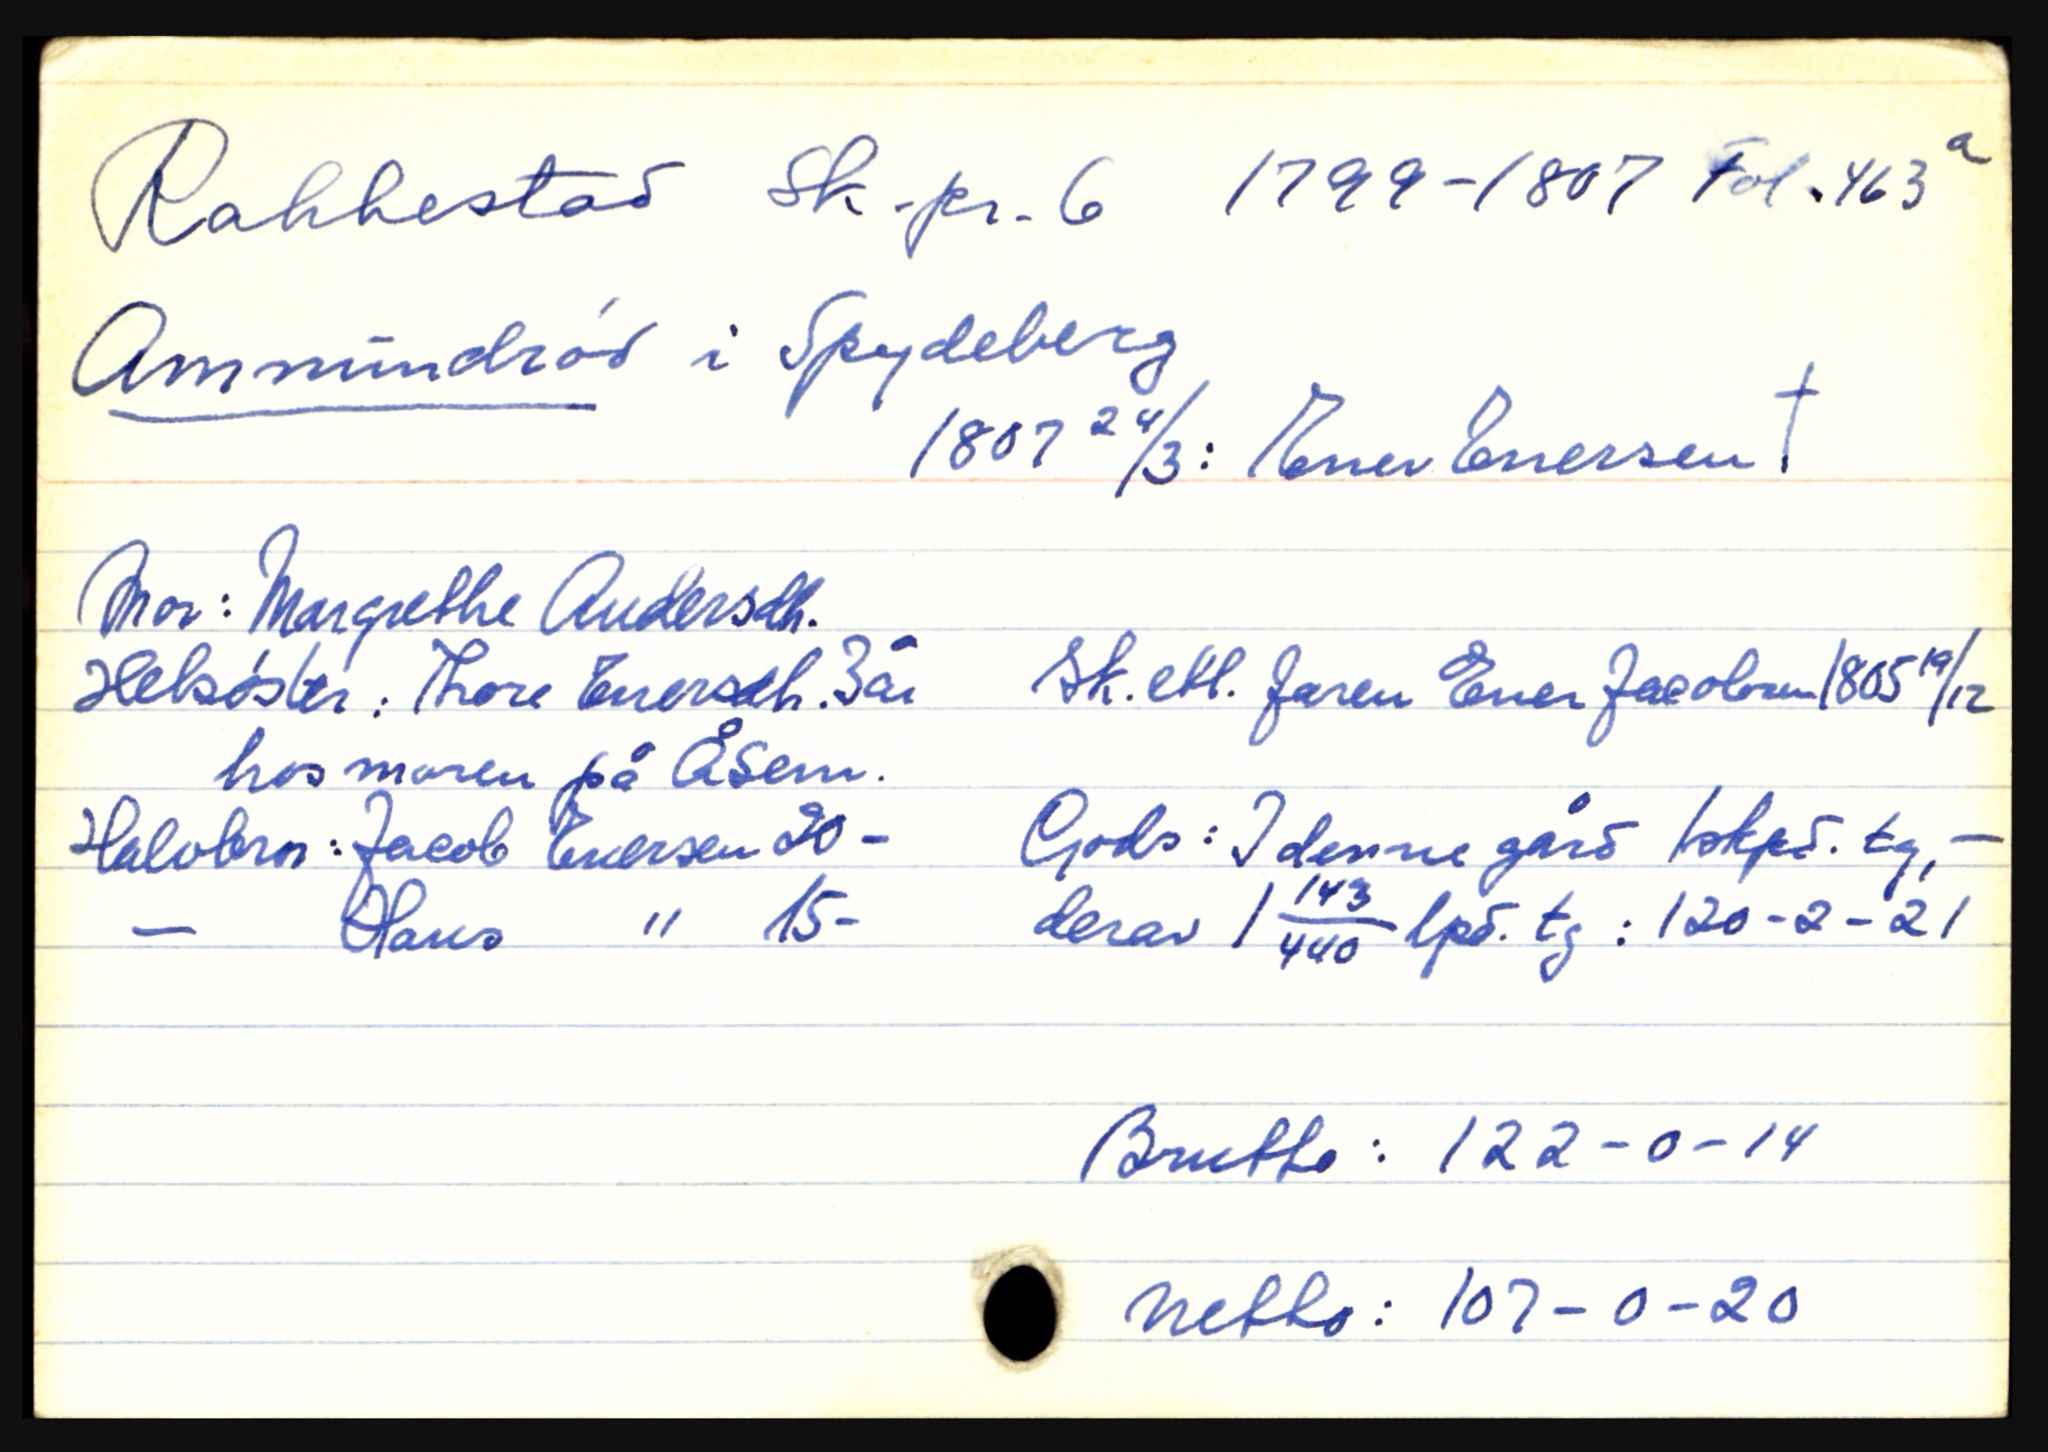 Rakkestad Sk.-pr. 6 1799-1807 Fol. 463 a
Ammundrød i Spydeberg
1807 24/3: Ener Enersen †
Mor: Margrethe Andersdh.
Helsøster: Thore Enersdh. 3 år
hos moren på Åsem.
Halvbror: Jacob Enersen 20 -
— Hans " 15 -
Sk. ekl. faren Ener Jacobsen 1805 19/12
Gods: I denne gård 1 skpd. tg, —
derav 1 143/440 lpd. tg: 120-2-21
Brutto: 122-0-14
Netto: 107-0-20